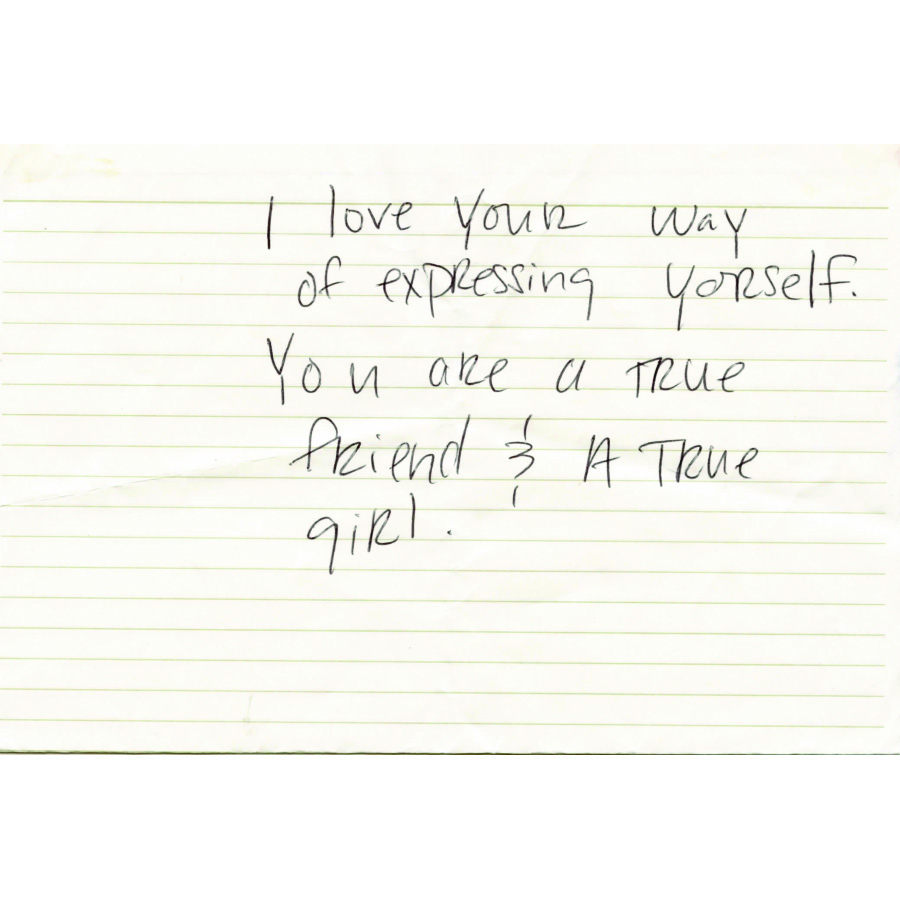 I love your way
of expressing yorself.
You are a true
friend & A True
girl.